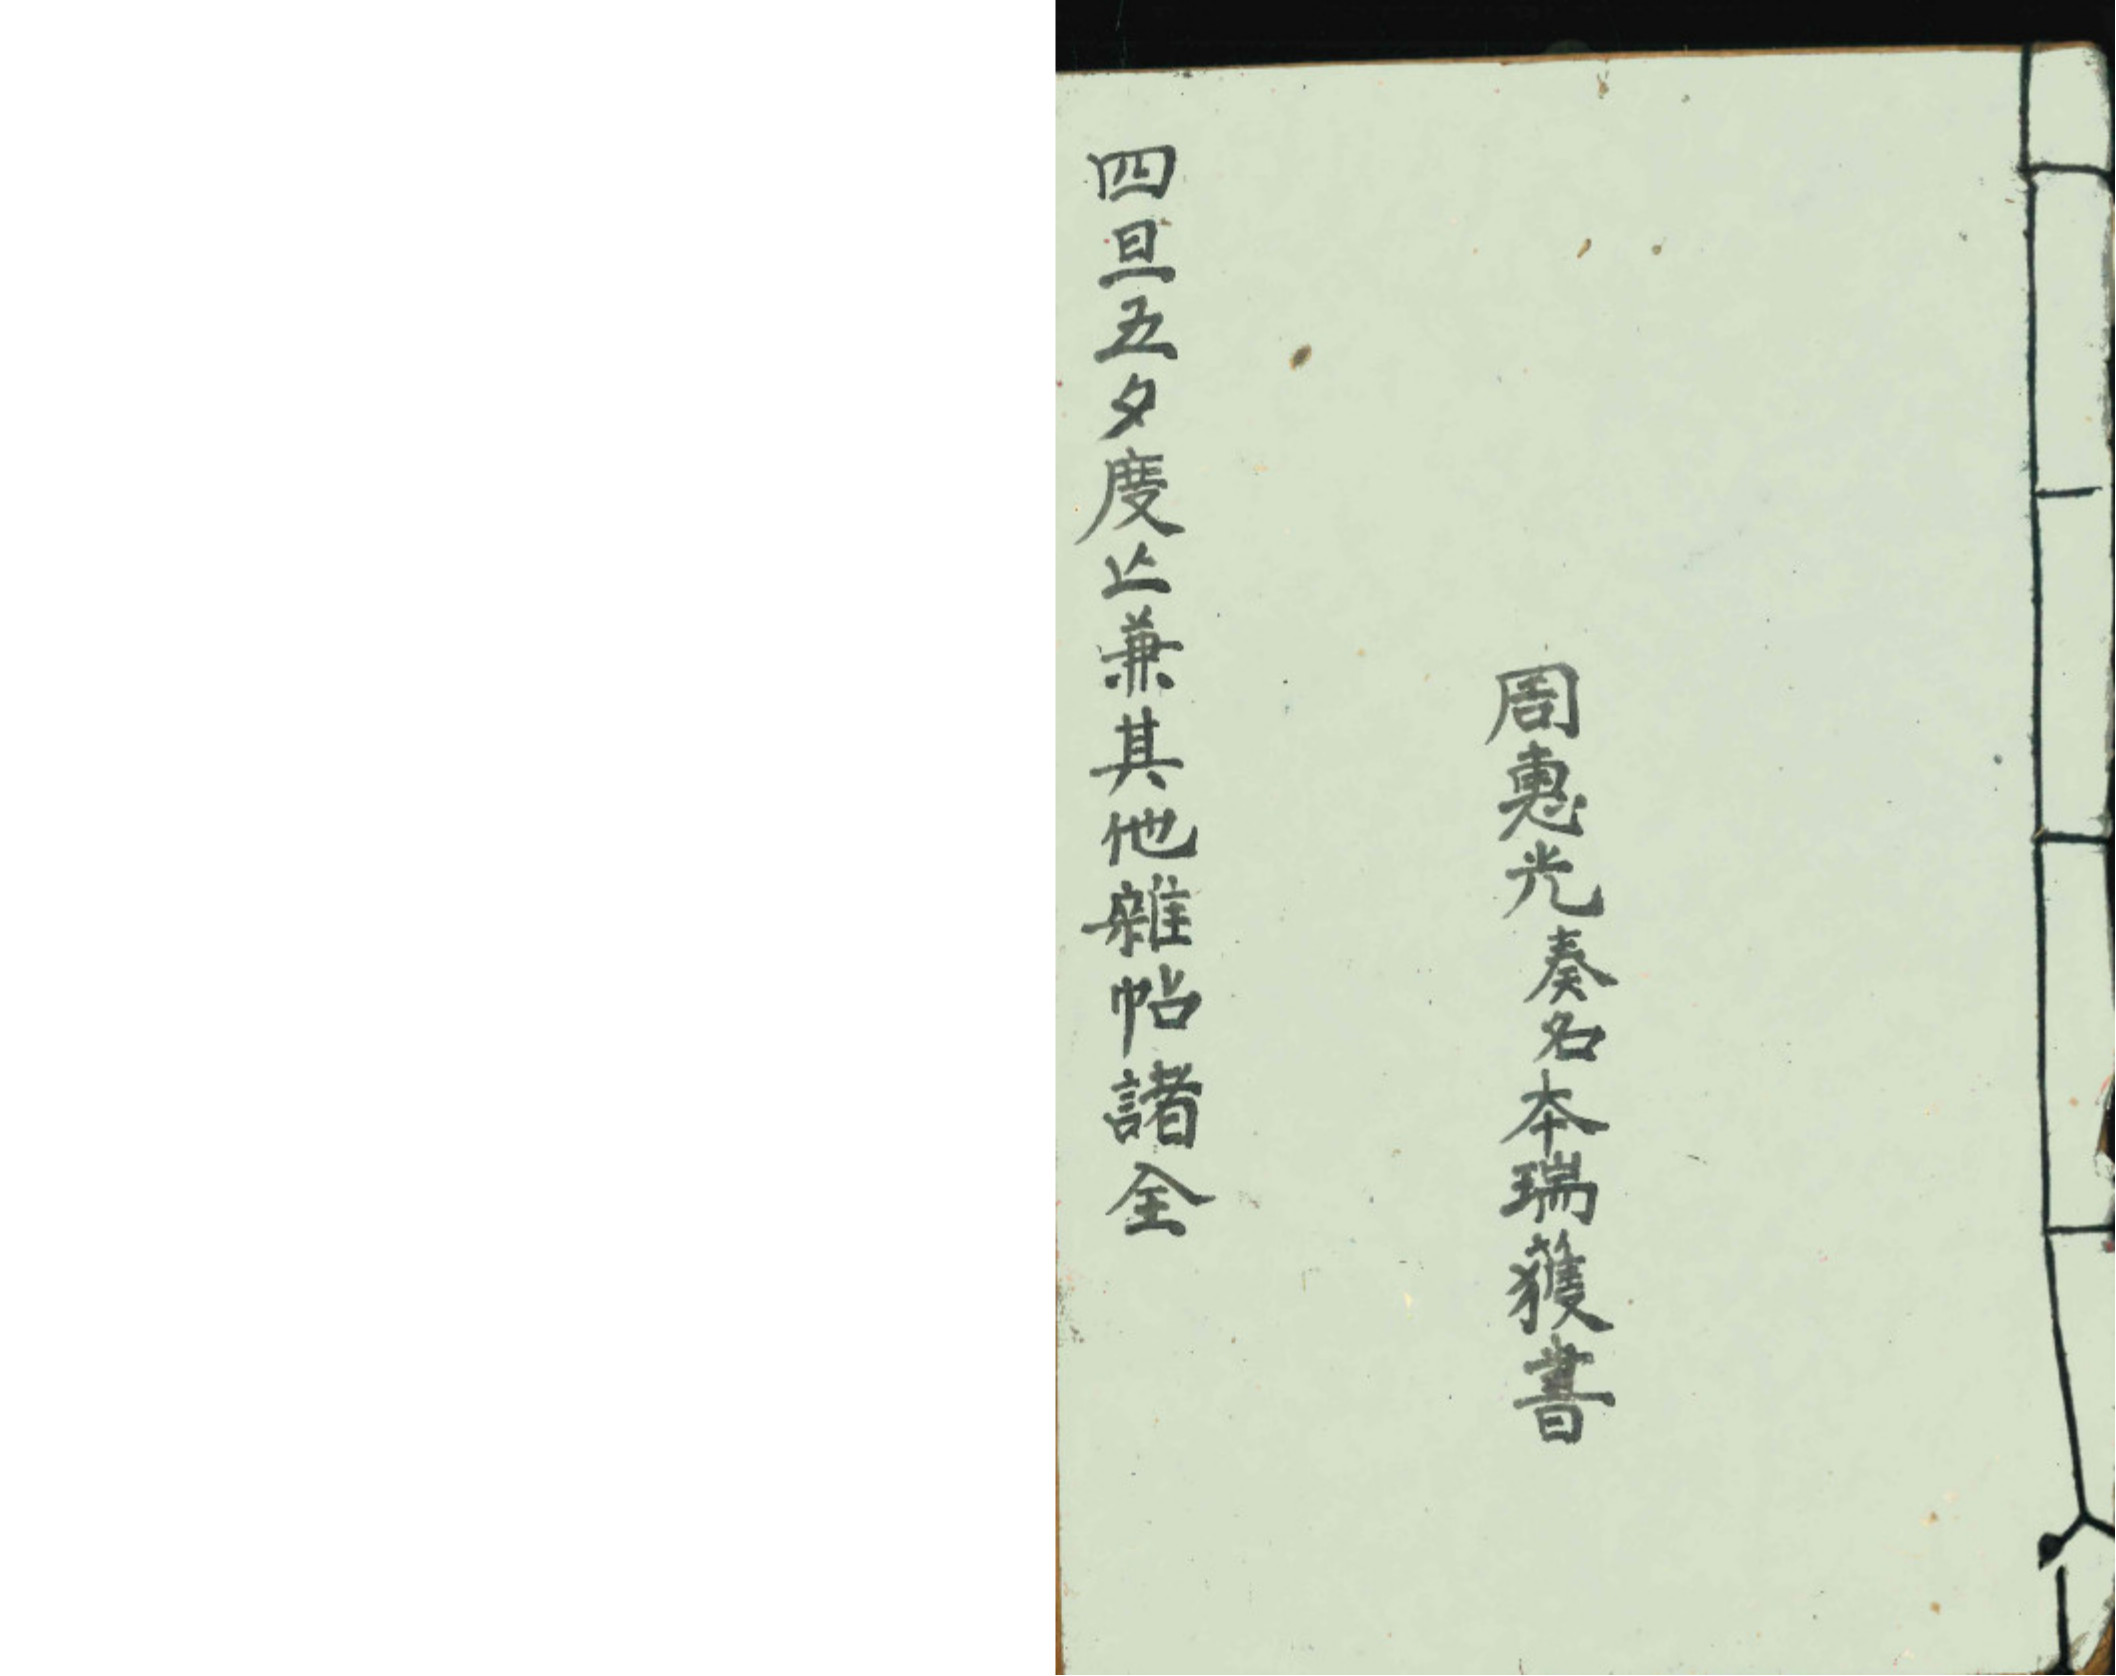 周惠光奏名本瑞獲書
四旦五夕度亾兼其他雜帖諸全